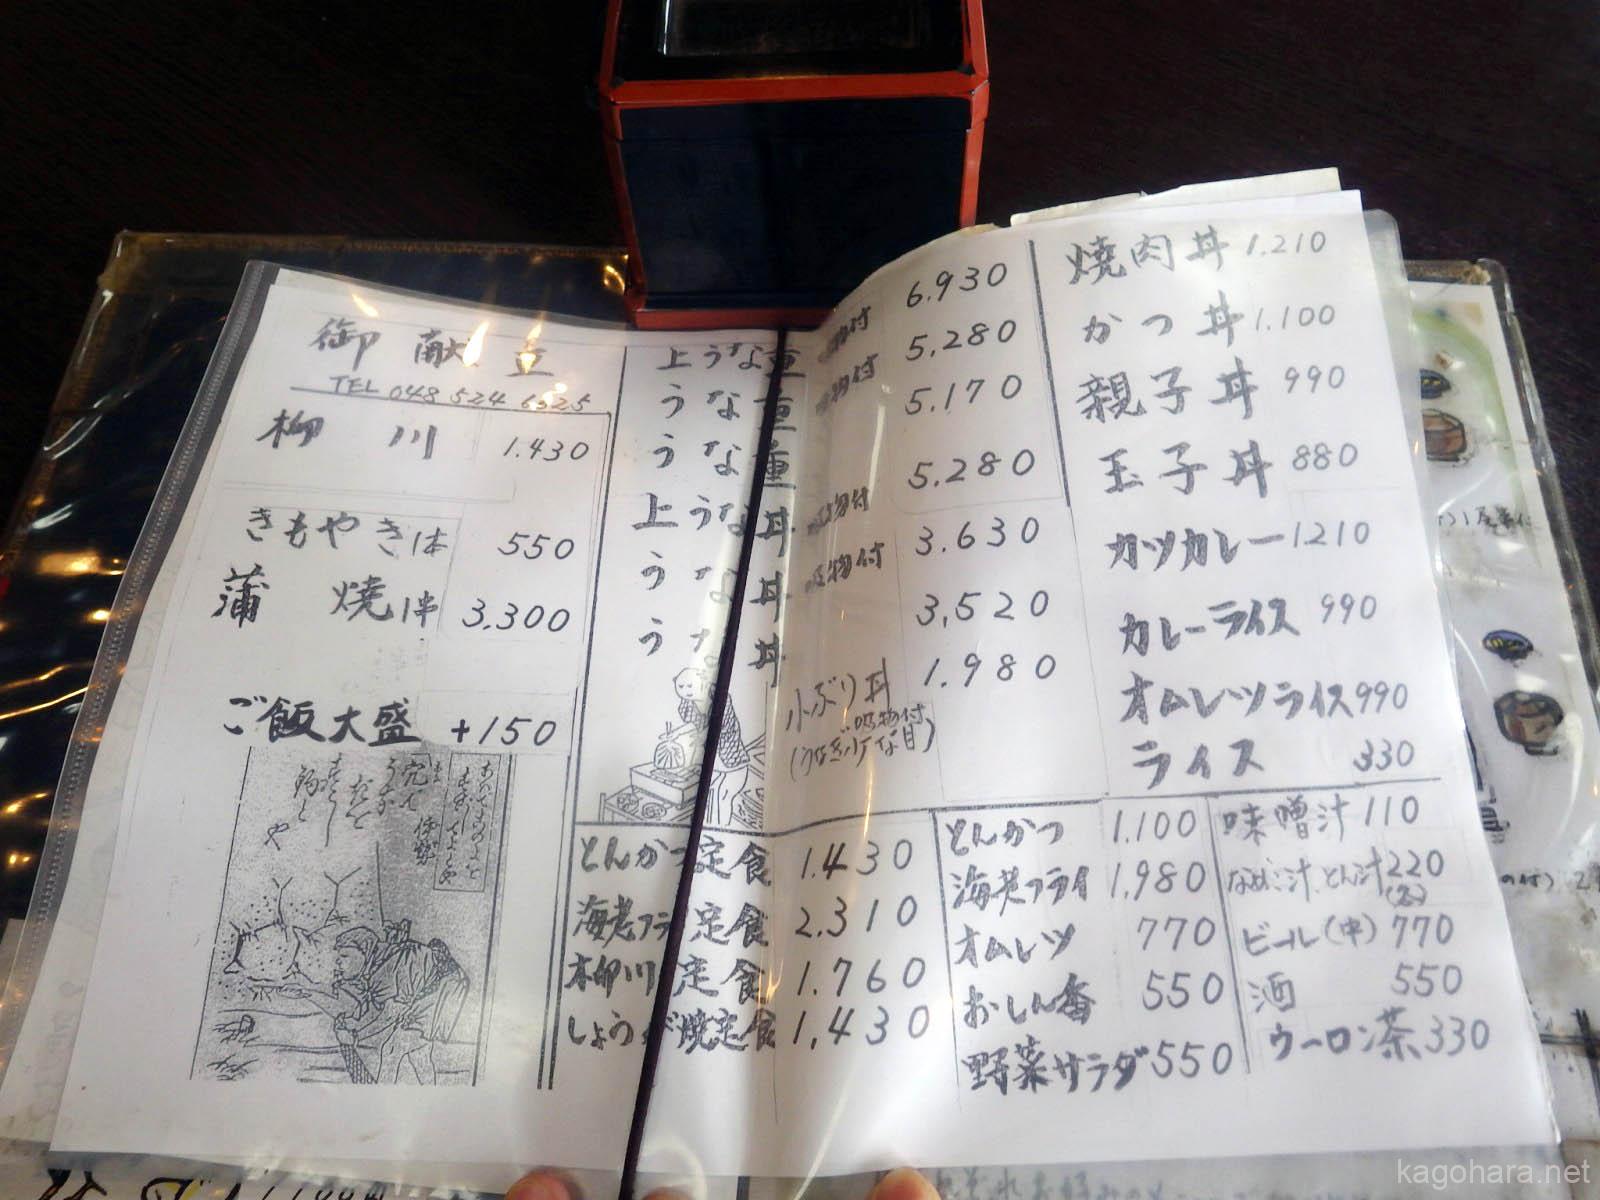 御献立
TEL 048 524 6525
柳川 1.430
きもやき1本 550
蒲焼1串 3,300
ご飯大盛 +150
上うな重 吸物付 6.930
うな重 吸物付 5,280
うな重 5.170
上うな丼 吸物付 5.280
うな丼 吸物付 3.630
うな丼 3,520
小ぶり丼 1.980
吸物付
(うなぎ少な目)
焼肉丼 1.210
かつ丼 1.100
親子丼 990
玉子丼 880
カツカレー 1210
カレーライス 990
オムレツライス 990
ライス 330
とんかつ定食 1.430
海老フライ定食 2.310
柳川定食 1.760
しょうが焼定食 1,430
とんかつ 1.100
海老フライ 1,980
オムレツ 770
おしん香 550
野菜サラダ 550
味噌汁 110
なめこ汁、とん汁 220
ビール(中) 770
酒 550
ウーロン茶 330
kagohara.net